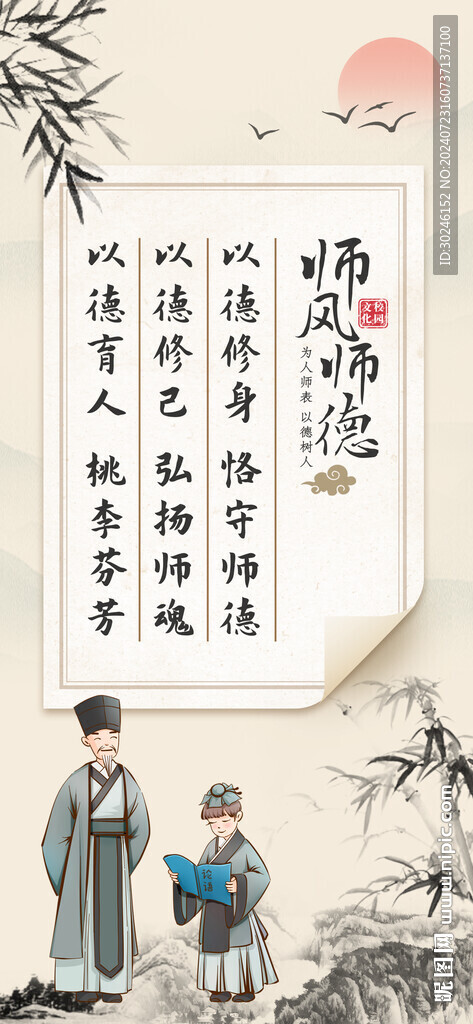 师风师德
校园文化
为人师表 以德树人
以德修身 恪守师德
以德修己 弘扬师魂
以德育人 桃李芬芳
论语
ID:30246152 NO:20240723160737137100
昵图网 www.nipic.com